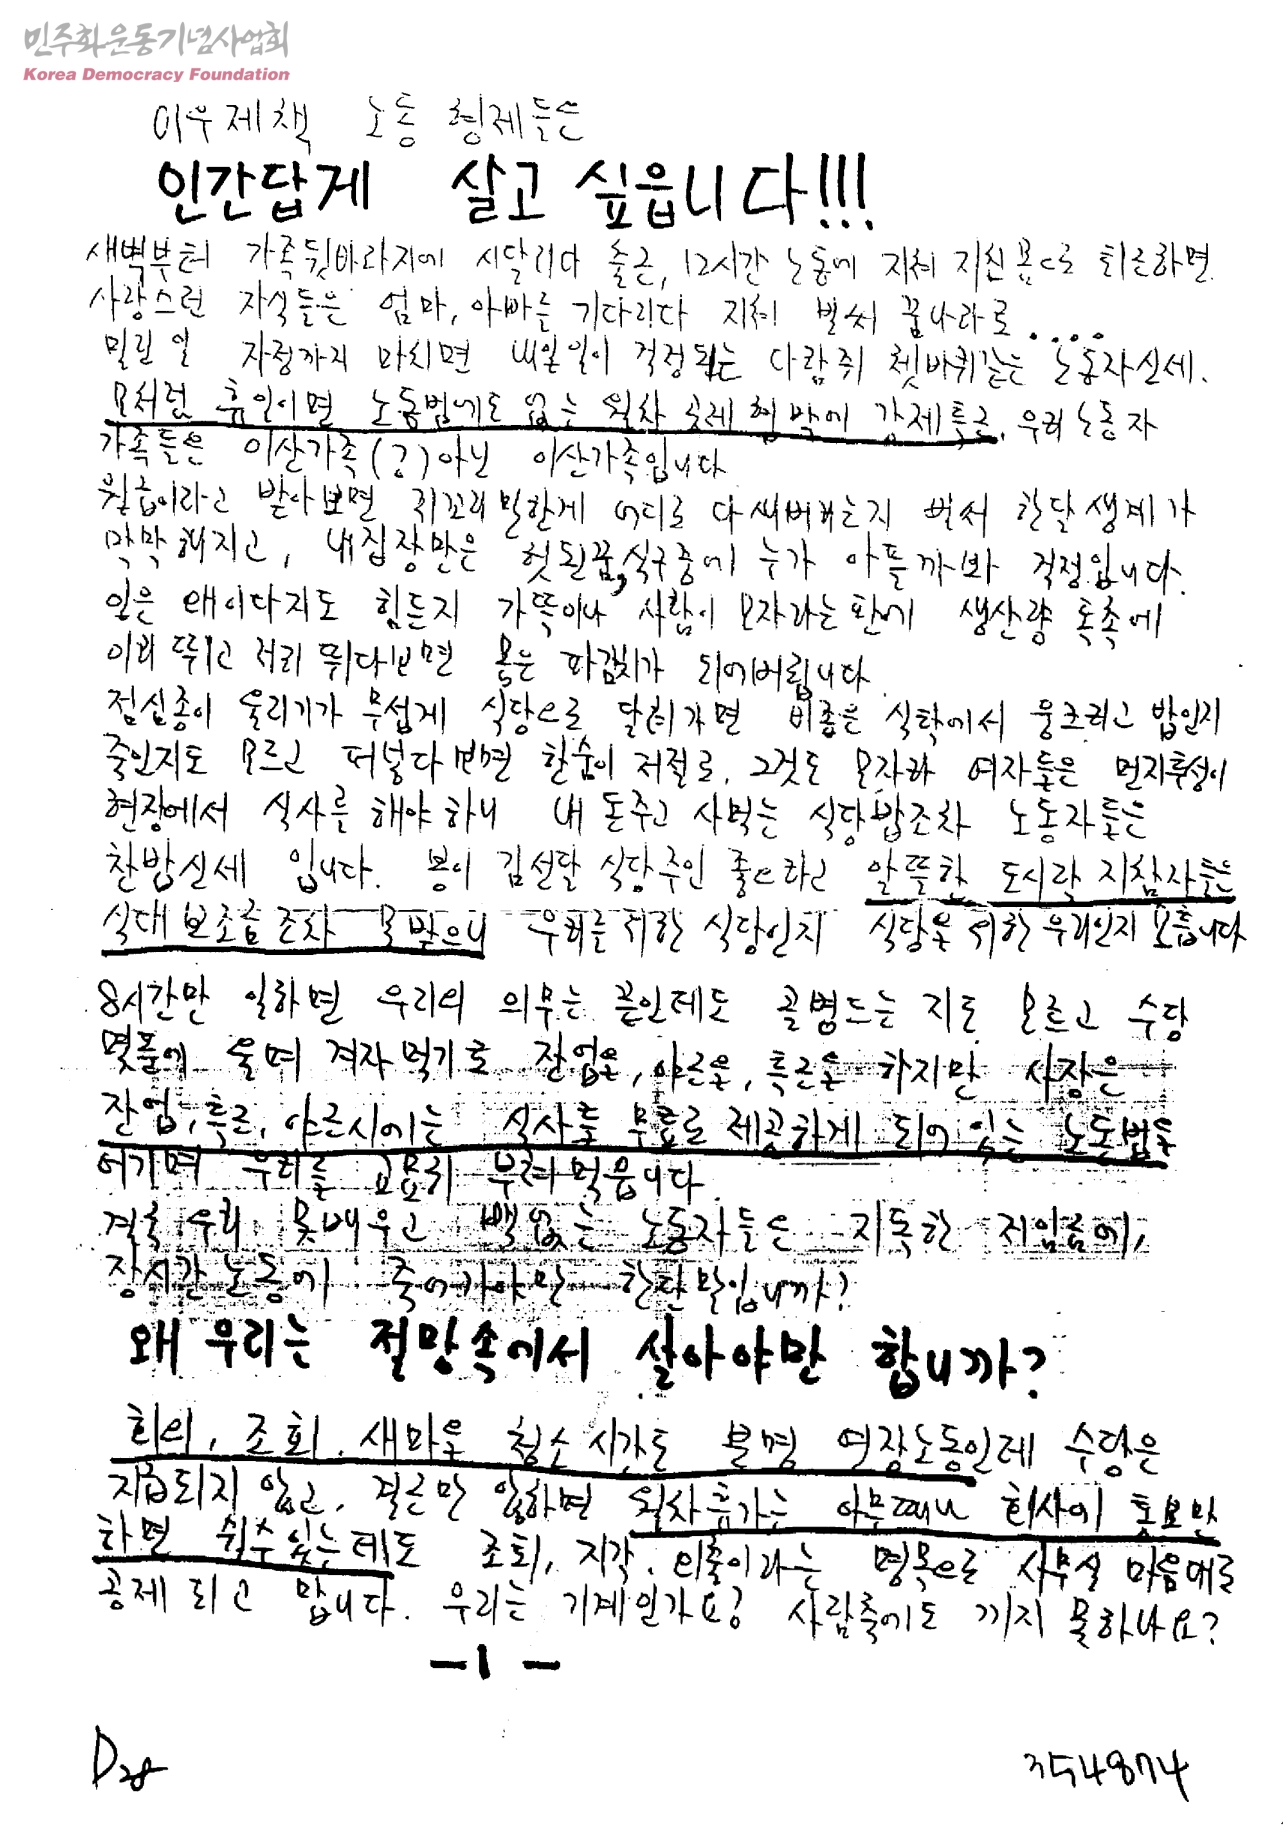 민주화운동기념사업회
Korea Democracy Foundation
이우제책 노동 형제들은
인간답게 살고 싶읍니다!!!
새벽부터 가족뒷바라지에 시달리다 출근, 12시간 노동에 지쳐 지친 몸으로 퇴근하면
사랑스런 자식들은 엄마, 아빠를 기다리다 지쳐 벌써 꿈나라로....
밀린 일 자정까지 마치면 내일일이 걱정되는 다람쥐 쳇바퀴같는 노동자신세.
모처럼 휴일이면 노동법에도 없는 월차 공제 협박에 강제특근, 우리 노동자
가족들은 이산가족(?)아닌 이산가족입니다
월급이라고 받아보면 쥐꼬리 만한게 어디로 다 새버리는지 벌써 한달 생계가
막막해지고, 내집장만은 헛된꿈, 식구중에 누가 아플까봐 걱정입니다.
일은 왜이다지도 힘든지 가뜩이나 사람이 모자라는 판에 생산량 독촉에
이리 뛰고 저리 뛰다보면 몸은 파김치가 되어버립니다
점심종이 울리기가 무섭게 식당으로 달려가면 비좁은 식탁에서 웅크리고 밥인지
죽인지도 모르고 퍼넣다 보면 한숨이 저절로, 그것도 모자라 여자들은 먼지투성이
현장에서 식사를 해야 하니 내 돈주고 사먹는 식당밥조차 노동자들은
찬밥신세 입니다. 봉이 김선달 식당주인 좋으라고 알뜰한 도시락 지참자들은
식대보조금조차 못받으니 우리를 위한 식당인지 식당을 위한 우리인지 모릅니다
8시간만 일하면 우리의 의무는 끝인데도 골병드는 지도 모르고 수당
몇푼에 울며 겨자먹기로 잔업을, 야근을, 특근을 하지만 사장은
잔업, 특근, 야근시에는 식사를 무료로 제공하게 되어 있는 노동법을
어기며 우리를 교묘히 부려먹읍니다
결국 우리 못배우고 빽없는 노동자들은 지독한 저임금에,
장시간 노동에 죽어가야만 한단말입니까?
왜 우리는 절망속에서 살아야만 합니까?
회의, 조회, 새마을 청소시간도 분명 연장노동인데 수당은
지급되지 않고, 결근만 안하면 월차휴가는 아무때나 회사에 통보만
하면 쉴수있는데도 조퇴, 지각, 외출이라는 명목으로 사무실 마음대로
공제 되고 맙니다. 우리는 기계인가요? 사람축에도 끼지 못하나요?
-1-
354874